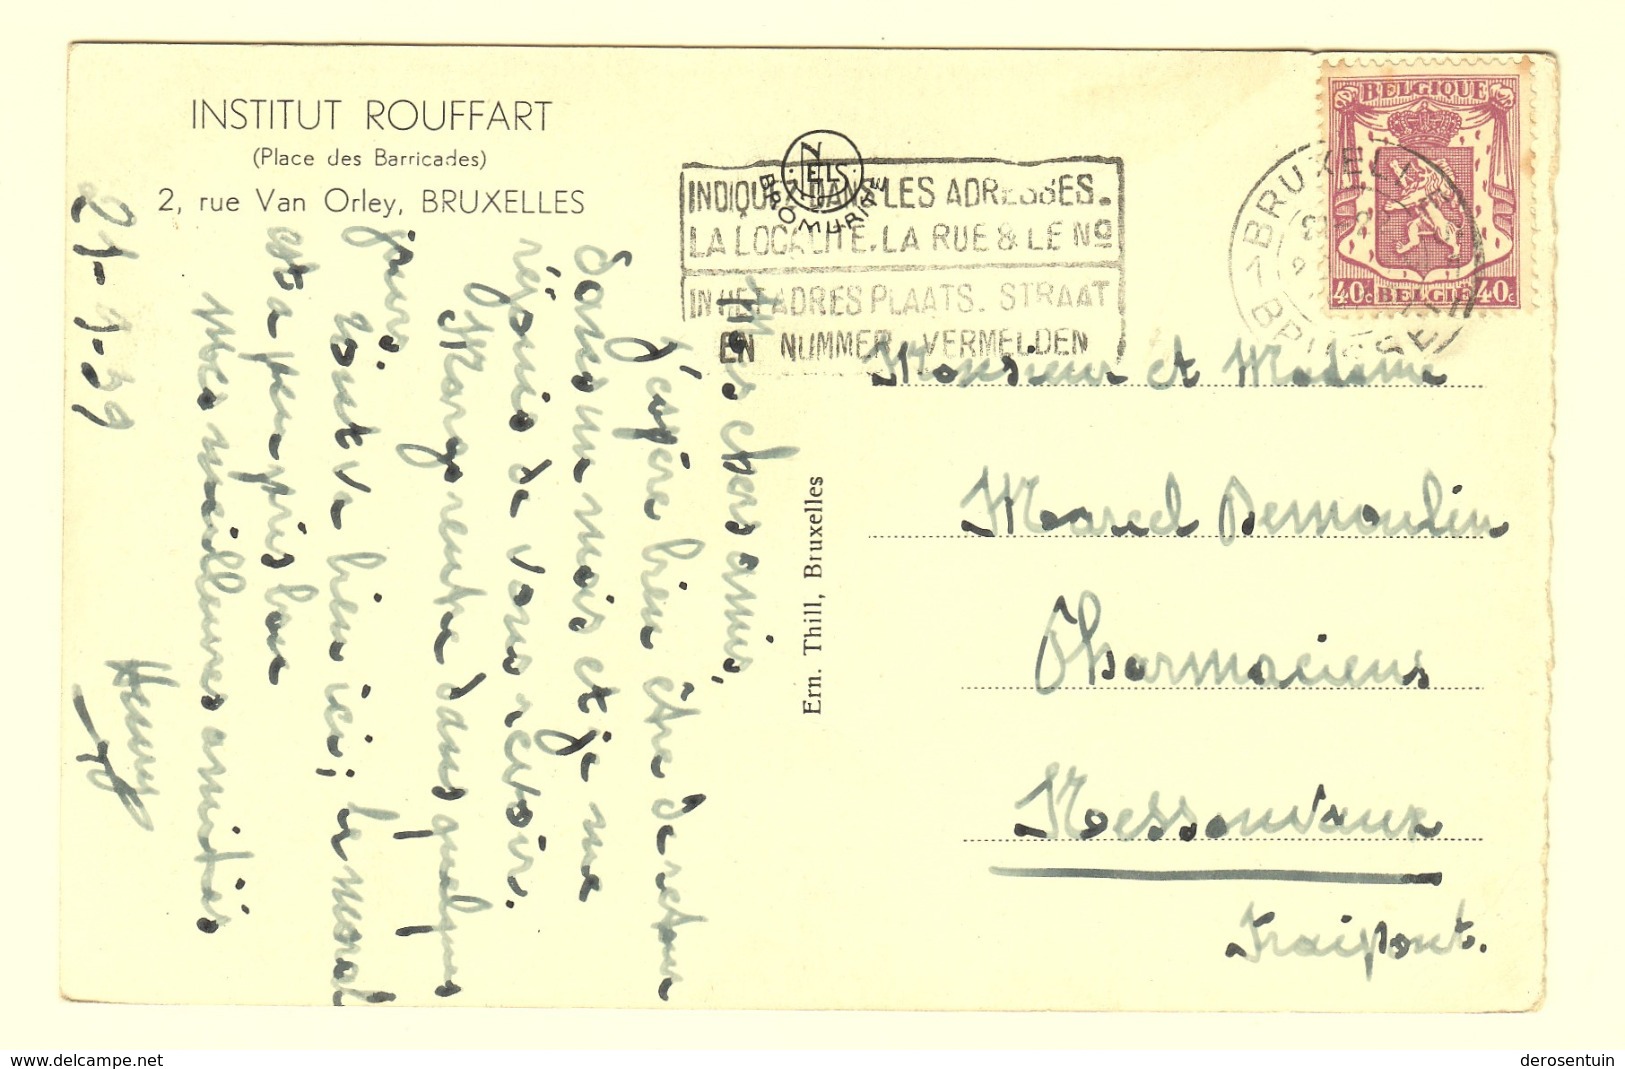 INSTITUT ROUFFART
(Place des Barricades)
2, rue Van Orley, BRUXELLES
NELS
BROMURITE
INDIQUEZ DANS LES ADRESSES.
LA LOCALITE. LA RUE & LE No
IN HET ADRES PLAATS. STRAAT
EN NUMMER VERMELDEN
BRUXELLES
BRUSSEL
BELGIQUE
40c BELGIE 40c
21-9-39
Mes chers amis,
J'espère bien être de retour
dans un mois et je me
réjouis de vous revoir.
Marguerite dans quelques
jours.
Tout va bien ici; le moral
est à peu près bon
Mes meilleures amitiés
Henry
Ern. Thill, Bruxelles
Monsieur et Madame
Marcel Demoulin
Pharmaciens
Nessonvaux
Fraipont.
derosentuin
www.delcampe.net